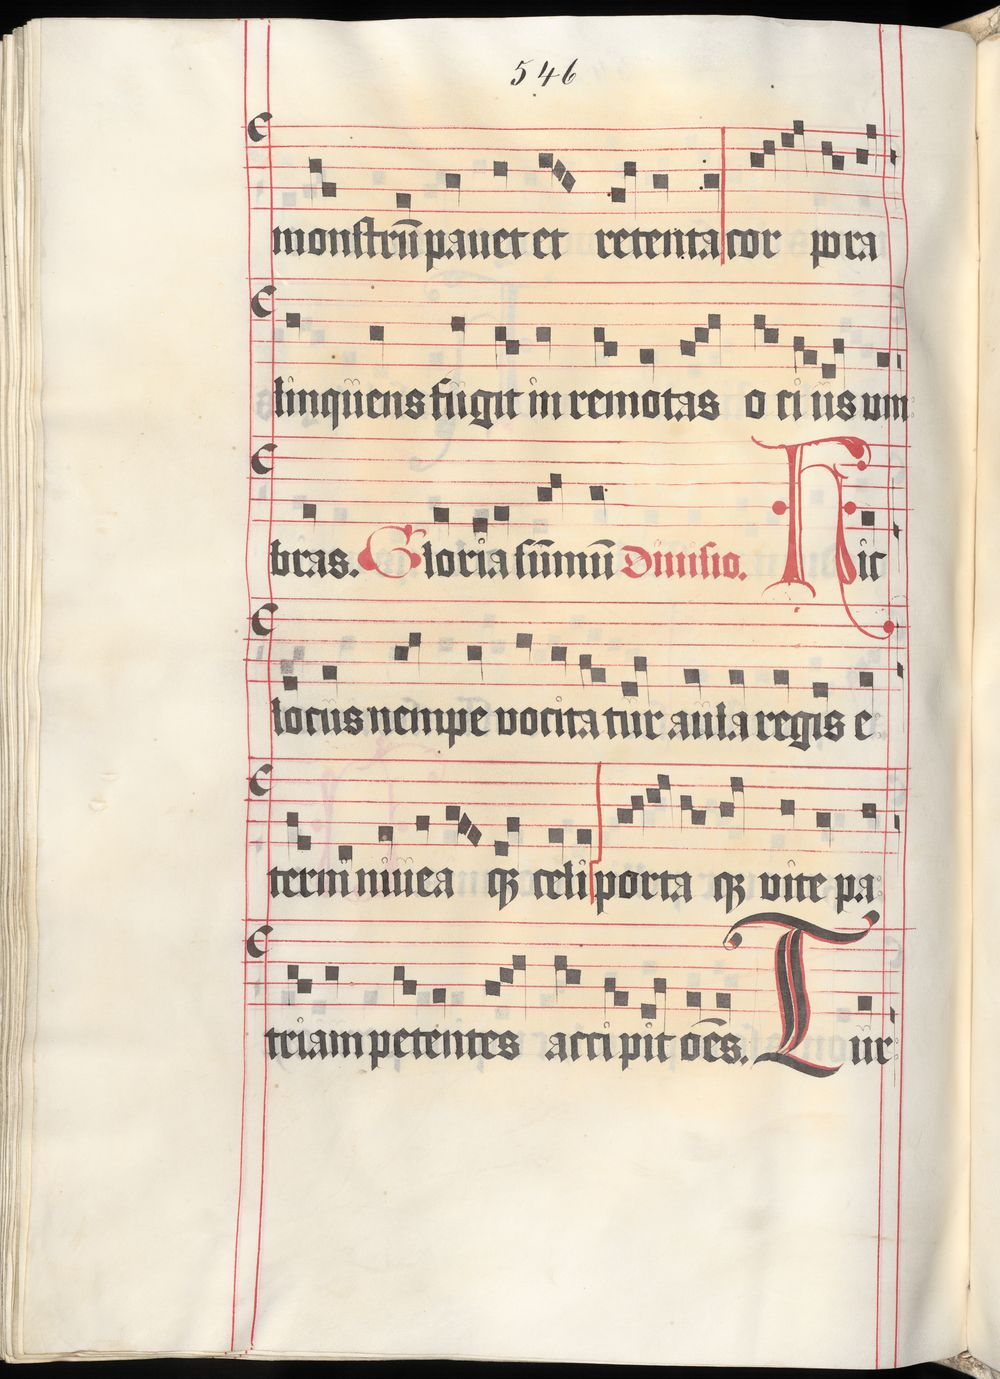 546
monstrū pauet et retenta cor pora
linquens fugit in remotas ocius um
bras. Gloria summū Diuisio. Hic
locus nempe vocitatur aula regis e
terni niuea qꝫ celi porta qꝫ vite pa
triam petentes accipit oēs. Tur